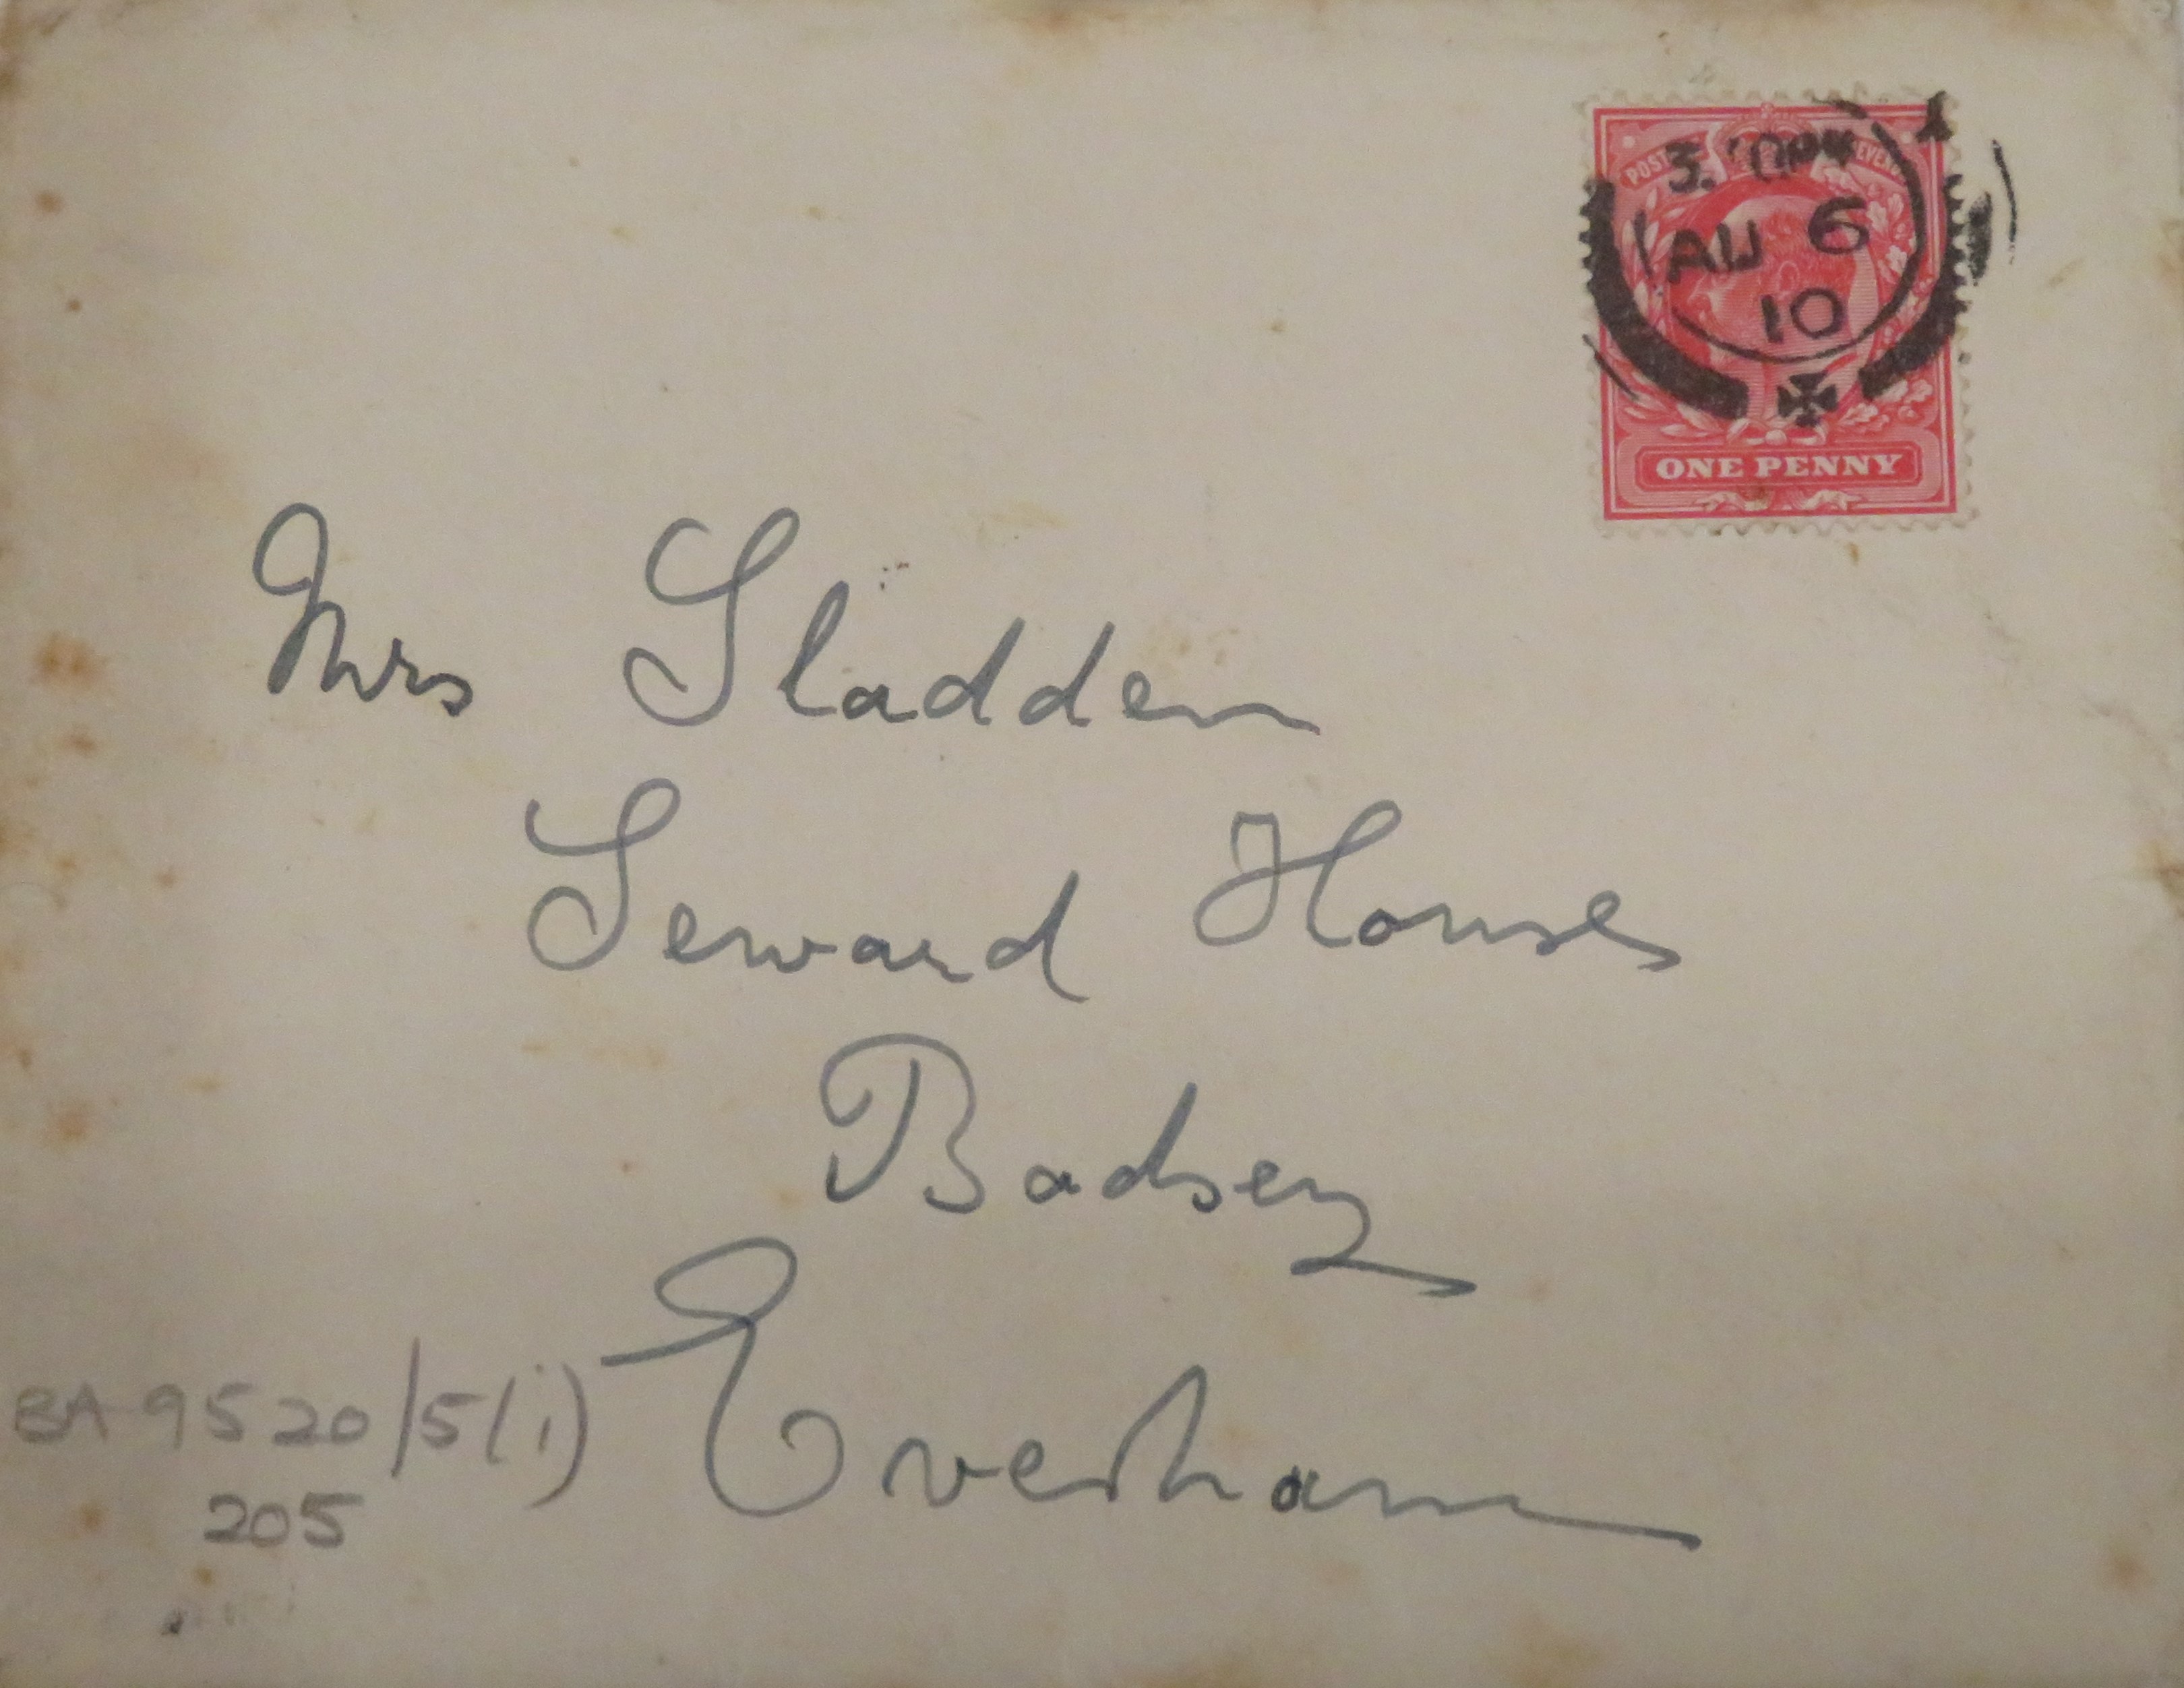 3.
AU 6
10
ONE PENNY
Mrs Sladden
Seward House
Badsey
Evesham
BA 9520/5(i)
205